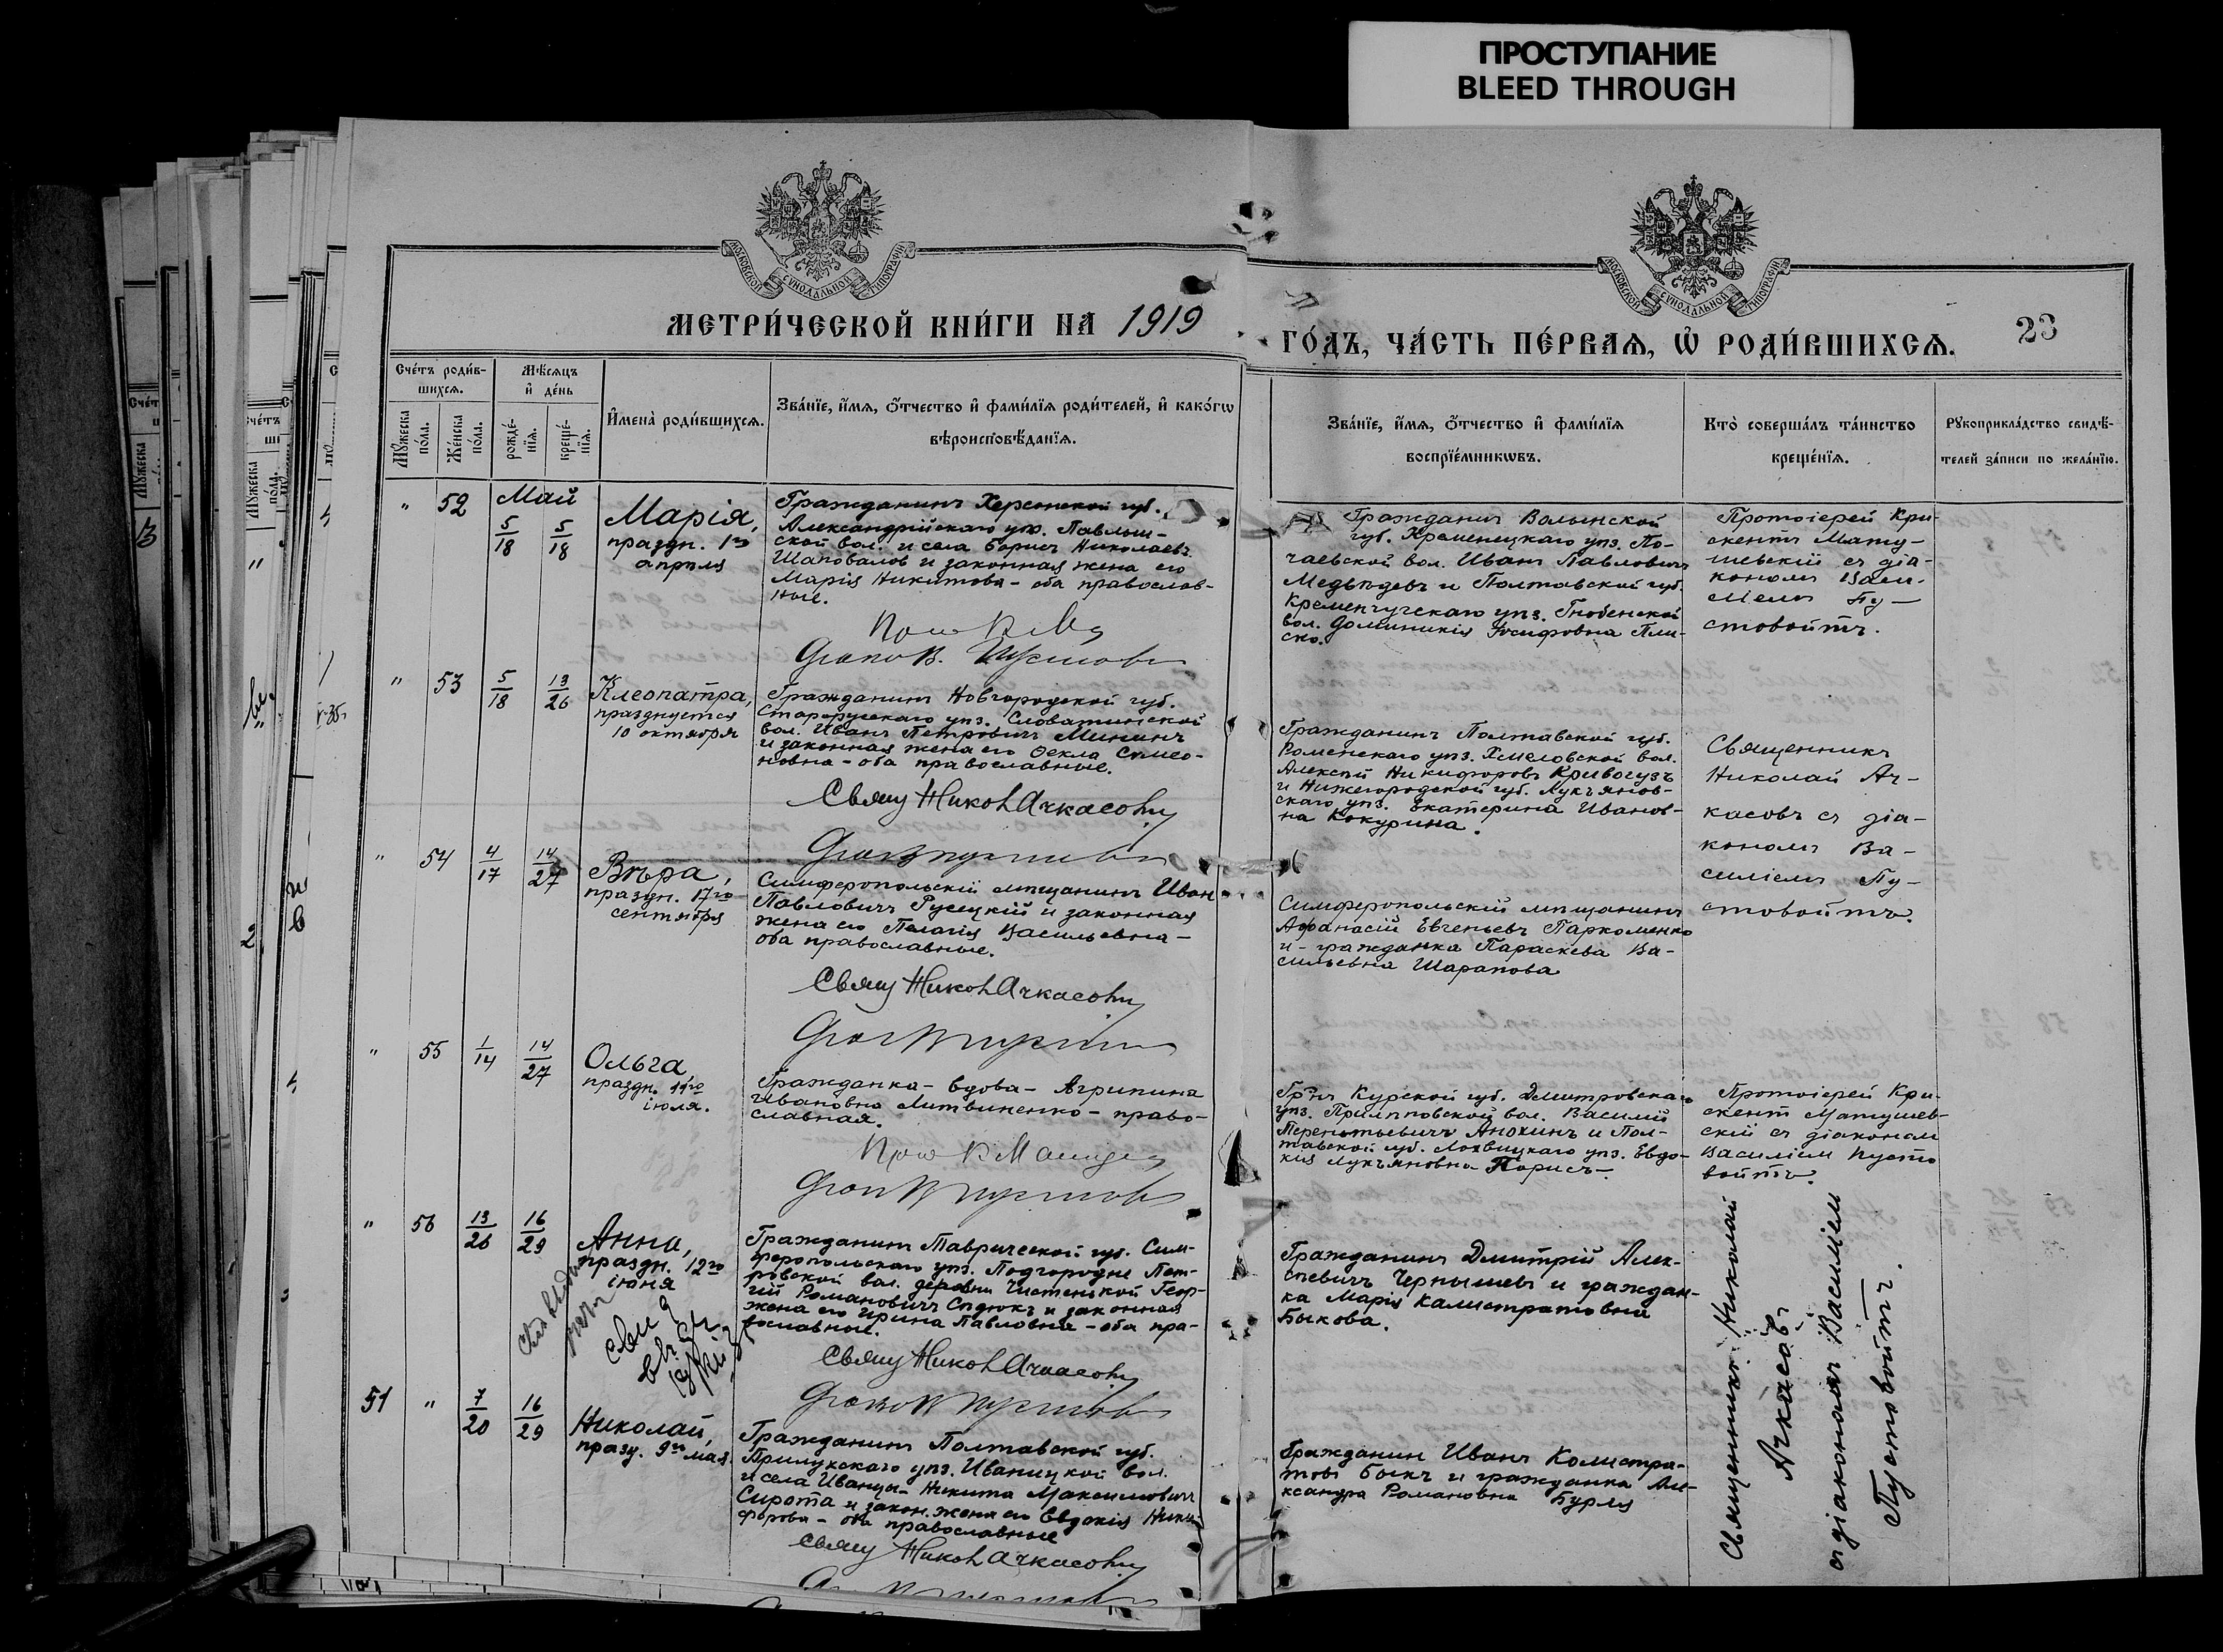 ПРОСТУПАНИЕ
BLEED THROUGH
МОСКОВСКОЙ СѴНОДАЛЬНОЙ ТИПОГРАФІИ
МОСКОВСКОЙ СѴНОДАЛЬНОЙ ТИПОГРАФІИ
МЕТРИ́ЧЕСКОЙ КНИ́ГИ НА 1919
ГО́ДЪ, ЧА́СТЬ ПЕ́РВАЯ, Ѡ РОДИ́ВШИХСЯ.
23
Сче́тъ роди́в-
шихся.
Мѣ́сяцъ
и҆ де́нь
Мꙋ́жеска
по́ла.
Же́нска
по́ла.
рожде́-
нїя.
креще́-
нїя.
И҆мена̀ роди́вшихся.
Зва́нїе, и҆́мя, ѻ҆́тчество и҆ фами́лїя роди́телей, и҆ како́гѡ
вѣроисповѣ́данїя.
Зва́нїе, и҆́мя, ѻ҆́тчество и҆ фами́лїя
воспрїе́мникѡвъ.
Кто̀ соверша́лъ та́инство
креще́нїя.
Рꙋкоприкла́дство свидѣ́-
телей за́писи по жела́нїю.
" 52
Май
5/18 5/18
Марія,
праздн. 1го
апрѣля
Гражданинъ Херсонской губ.
Александрійскаго уѣз. Павлыш-
ской вол. и села Борисъ Николаевъ
Шаповаловъ и законная жена его
Марія Никитова - оба православ-
ные.
Гражданинъ Волынской
губ. Кременецкаго уѣз. По-
чаевской вол. Иванъ Павловичъ
Медвѣдевъ и Полтавской губ.
Кременчугскаго уѣз.
вол. Доминикія Іосифовна Пли-
ско.
Протоіерей Кри-
скентъ Мату-
шевскій съ діа-
кономъ Васи-
ліемъ Пу-
стовойтъ.
" 53 5/18 13/26
Клеопатра,
празднуется
10 октября
Гражданинъ Новгородской губ.
Старорусскаго уѣз.
вол. Иванъ Петровичъ Мининъ
и законная жена его Ѳекла Симео-
новна - оба православные.
Свящ Никол Ачкасовъ
Гражданинъ Полтавской губ.
Роменскаго уѣз. Хмеловской вол.
Алексѣй Никифоровъ Кривогузъ
и Нижегородской губ. Лукъянов-
скаго уѣз. Екатерина Иванов-
на Кокурина.
Священникъ
Николай Ач-
касовъ съ діа-
кономъ Ва-
силіемъ Пу-
стовойтъ.
" 54 4/17 14/27
Вѣра,
праздн. 17го
сентября
Симферопольскій мѣщанинъ Иван
Павловичъ Русецкій и законная
жена его Пелагія Васильевна -
оба православные.
Свящ Никол Ачкасовъ
Симферопольскій мѣщанинъ
Афанасій Евгеньевъ Пархоменко
и - гражданка Параскева Ва-
сильевна Шарапова
" 55 1/14 14/27
Ольга,
праздн. 11го
іюля.
Гражданка - вдова - Агрипина
Ивановна Литвиненко - право-
славная.
Гр-нъ Курской губ. Дмитровскаго
уѣз. вол. Василій
Терентьевичъ Анохинъ и Пол-
тавской губ. Лохвицкаго уѣз. Евдо-
кія Лукъяновна Борисъ.
Протоіерей Кри-
скентъ Матушев-
скій съ діакономъ
Василіемъ Пусто
войтъ.
" 56 13/26 16/29
Анна,
праздн. 12го
іюня
Гражданинъ Таврической губ. Сим-
феропольскаго уѣз. Подгородне Пет-
ровской вол. деревни Чистенькой Геор-
гій Романовичъ Сѣдюкъ и законная
жена его Ирина Павловна - оба пра-
вославные.
Свящ Никол Ачкасовъ
Гражданинъ Дмитрій Алек-
сѣевичъ Чернышевъ и граждан-
ка Марія Калистратовна
Быкова.
Священникъ Николай
Ачкасовъ
съ діакономъ Василіемъ
Пустовойтъ.
51 " 7/20 16/29
Николай,
празд. 9го мая.
Гражданинъ Полтавской губ.
Прилукскаго уѣз. Иваницкой вол.
и села Иваницы - Никита Максимовичъ
Сирота и закон. жена его Евдокія Ники-
форова - оба православные
Свящ Никол Ачкасовъ
Гражданин Иванъ Калистра-
товъ Быкъ и гражданка Але-
ксандра Романовна Бурля